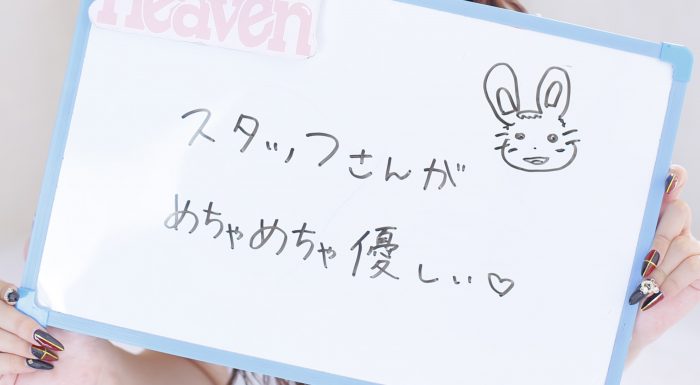 Heaven
スタッフさんが
めちゃめちゃ優しい♡